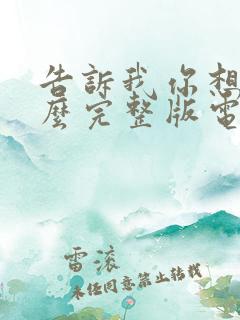 告訴我你想
麼完整版電
雷滾
未经同意禁止转载